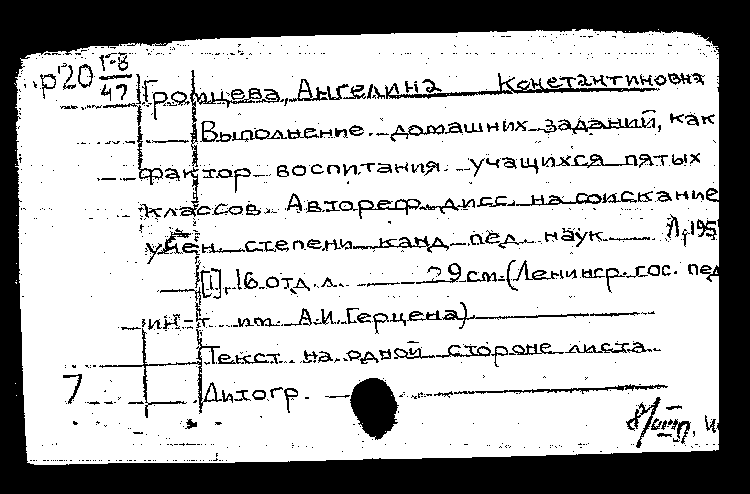 р20 Г-8
47
Громцева, Ангелина Константиновна
Выполнение домашних заданий, как
фактор воспитания учащихся пятых
классов. Автореф. дисс. на соискание
учен. степени канд. пед. наук Л., 195
[1], 16 отд. л. 29 см. (Ленингр. гос. пед
ин-т им. А.И. Герцена)
Текст на одной стороне листа
7
Литогр.